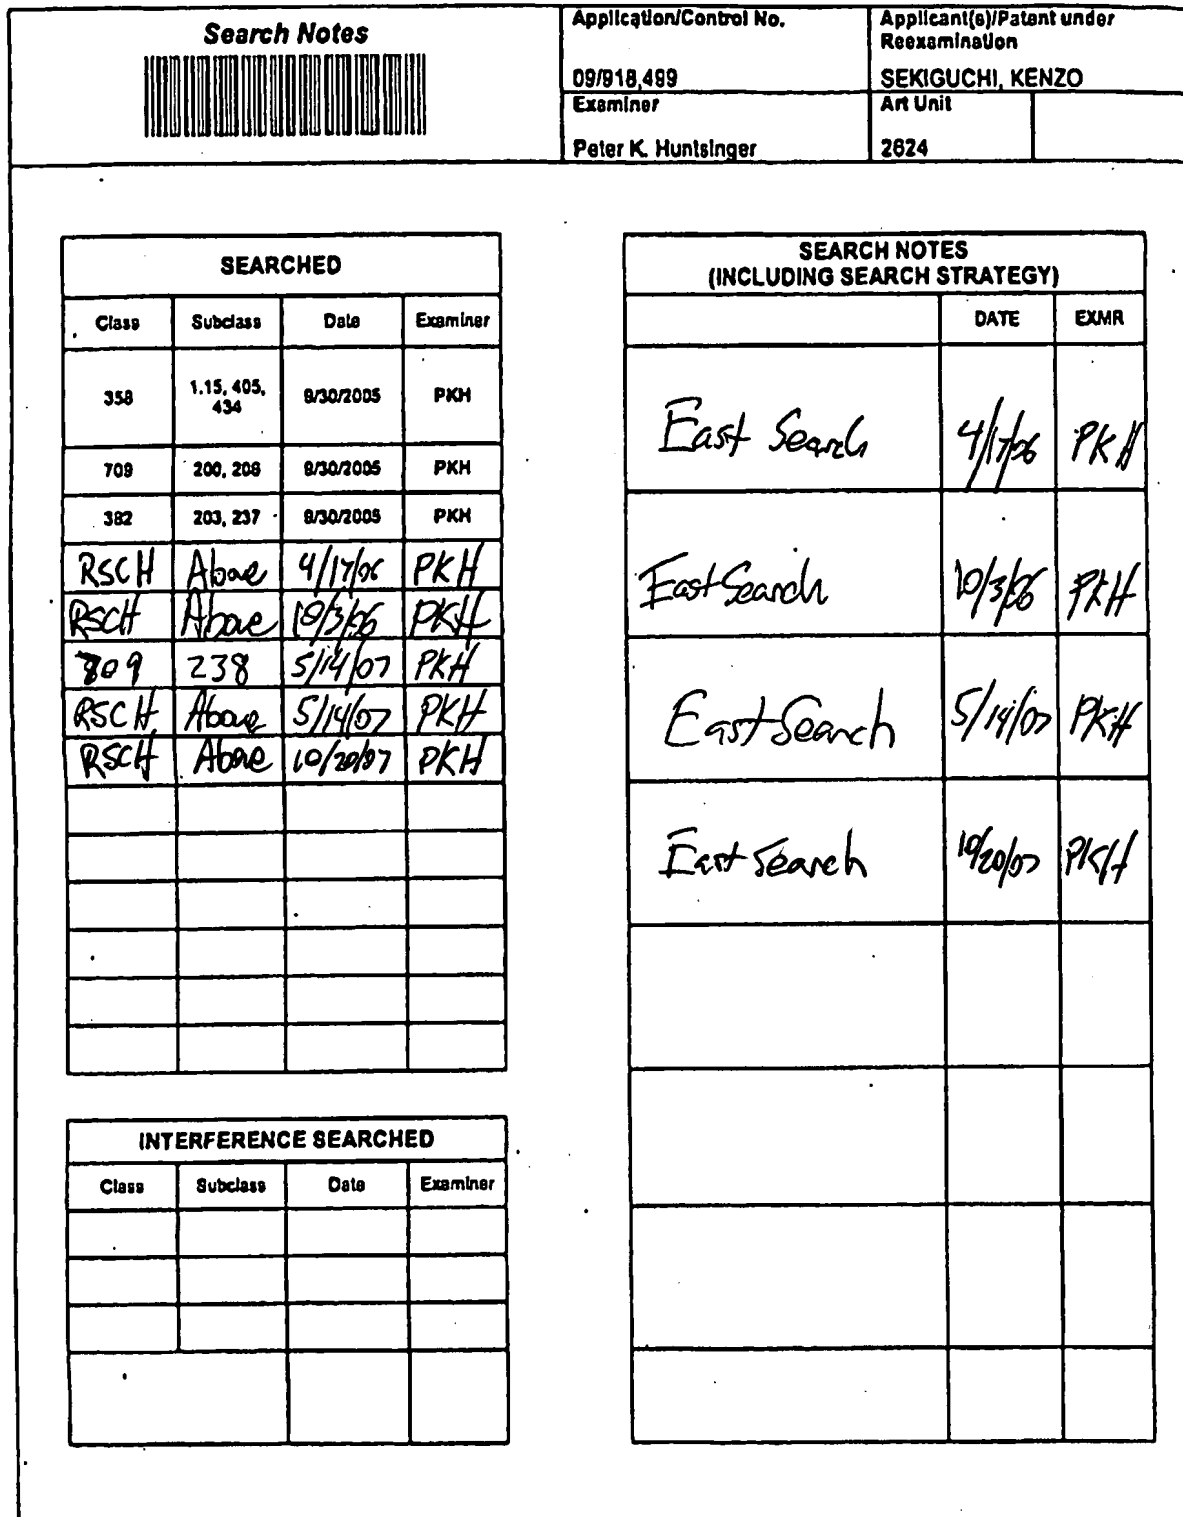 Search Notes
Application/Control No.
09/918,499
Applicant(s)/Patent under
Reexamination
SEKIGUCHI, KENZO
Examiner
Peter K. Huntsinger
Art Unit
2624
SEARCHED
Class Subclass Date Examiner
358 1.15, 405, 434 9/30/2005 PKH
709 200, 206 9/30/2005 PKH
382 203, 237 9/30/2005 PKH
RSCH Above 4/17/06 PKH
RSCH Above 10/3/06 PKH
709 238 5/14/07 PKH
RSCH Above 5/14/07 PKH
RSCH Above 10/20/07 PKH
INTERFERENCE SEARCHED
Class Subclass Date Examiner
SEARCH NOTES
(INCLUDING SEARCH STRATEGY)
DATE EXMR
East Search 4/17/06 PKH
East Search 10/3/06 PKH
East Search 5/14/07 PKH
East Search 10/20/07 PKH